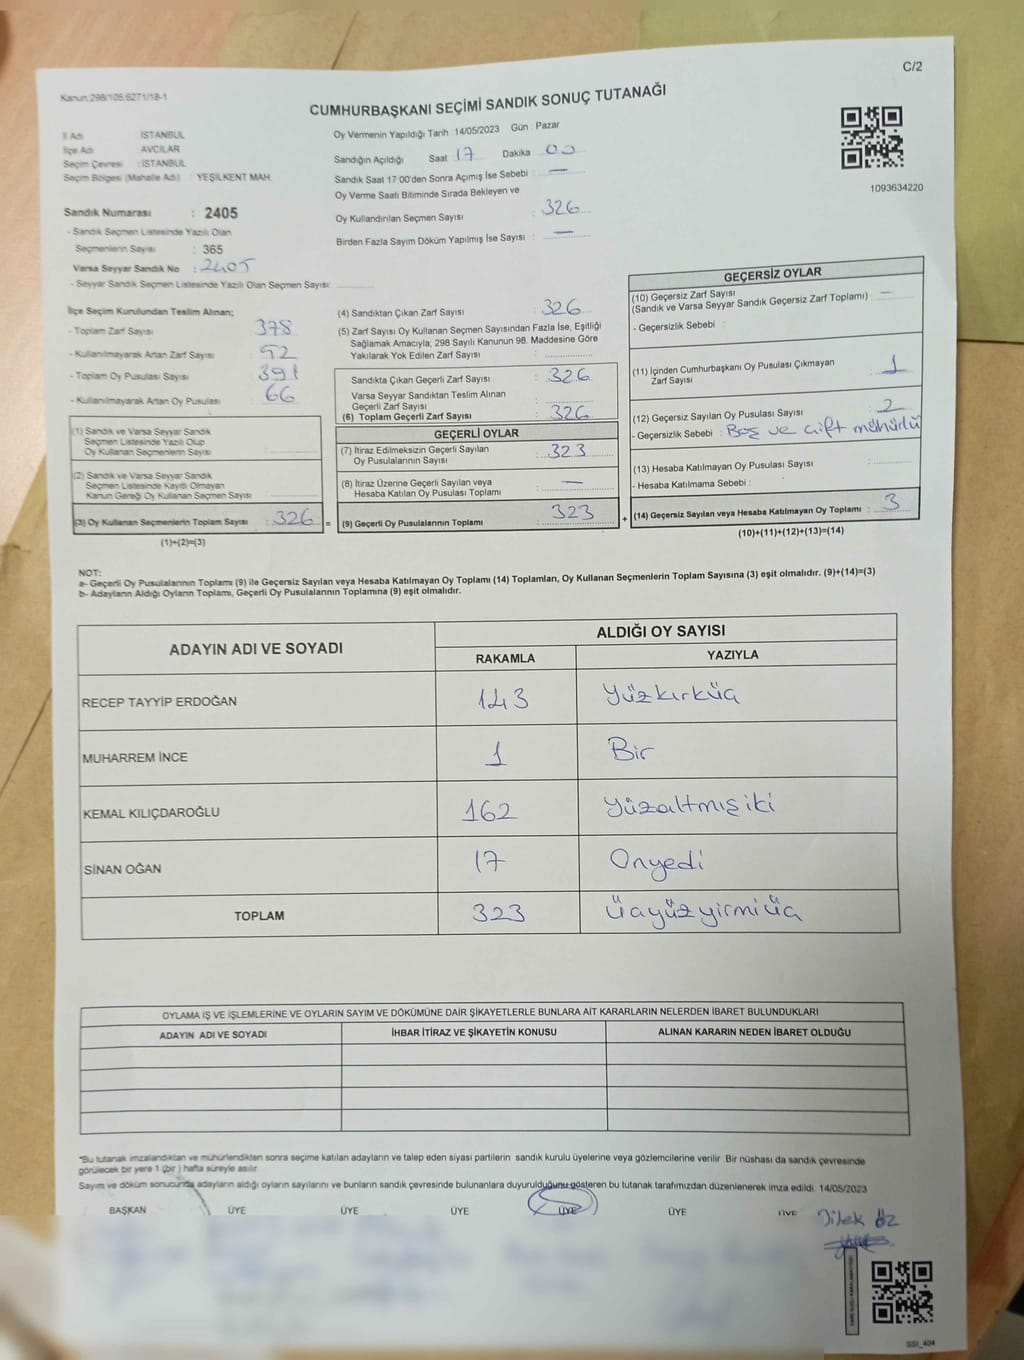 C/2
Kanun.298/105.6271/18-1
CUMHURBAŞKANI SEÇİMİ SANDIK SONUÇ TUTANAĞI
İl Adı : İSTANBUL
İlçe Adı : AVCILAR
Seçim Çevresi : İSTANBUL
Seçim Bölgesi (Mahalle Adı) : YEŞİLKENT MAH.
Sandık Numarası : 2405
- Sandık Seçmen Listesinde Yazılı Olan
Seçmenlerin Sayısı : 365
Varsa Seyyar Sandık No : 2405
- Seyyar Sandık Seçmen Listesinde Yazılı Olan Seçmen Sayısı:
Oy Vermenin Yapıldığı Tarih : 14/05/2023 Gün : Pazar
Sandığın Açıldığı Saat 17 Dakika 00
Sandık Saat 17.00'den Sonra Açımış İse Sebebi : —
Oy Verme Saati Bitiminde Sırada Bekleyen ve
Oy Kullandırılan Seçmen Sayısı : 326
Birden Fazla Sayım Döküm Yapılmış İse Sayısı : —
1093634220
İlçe Seçim Kurulundan Teslim Alınan;
- Toplam Zarf Sayısı : 378
- Kullanılmayarak Artan Zarf Sayısı : 52
- Toplam Oy Pusulası Sayısı : 391
- Kullanılmayarak Artan Oy Pusulası : 66
(1) Sandık ve Varsa Seyyar Sandık
Seçmen Listesinde Yazılı Olup
Oy Kullanan Seçmenlerin Sayısı :
(2) Sandık ve Varsa Seyyar Sandık
Seçmen Listesinde Kayıtlı Olmayan
Kanun Gereği Oy Kullanan Seçmen Sayısı :
(3) Oy Kullanan Seçmenlerin Toplam Sayısı : 326 =
(1)+(2)=(3)
(4) Sandıktan Çıkan Zarf Sayısı : 326
(5) Zarf Sayısı Oy Kullanan Seçmen Sayısından Fazla İse, Eşitliği
Sağlamak Amacıyla; 298 Sayılı Kanunun 98. Maddesine Göre
Yakılarak Yok Edilen Zarf Sayısı :
Sandıkta Çıkan Geçerli Zarf Sayısı : 326
Varsa Seyyar Sandıktan Teslim Alınan
Geçerli Zarf Sayısı :
(6) Toplam Geçerli Zarf Sayısı : 326
GEÇERLİ OYLAR
(7) İtiraz Edilmeksizin Geçerli Sayılan : 323
Oy Pusulalarının Sayısı
(8) İtiraz Üzerine Geçerli Sayılan veya : —
Hesaba Katılan Oy Pusulası Toplamı
(9) Geçerli Oy Pusulalarının Toplamı : 323 +
GEÇERSİZ OYLAR
(10) Geçersiz Zarf Sayısı : —
(Sandık ve Varsa Seyyar Sandık Geçersiz Zarf Toplamı)
- Geçersizlik Sebebi :
(11) İçinden Cumhurbaşkanı Oy Pusulası Çıkmayan : 1
Zarf Sayısı
(12) Geçersiz Sayılan Oy Pusulası Sayısı : 2
- Geçersizlik Sebebi : Boş ve çift mühürlü
(13) Hesaba Katılmayan Oy Pusulası Sayısı :
- Hesaba Katılmama Sebebi :
(14) Geçersiz Sayılan veya Hesaba Katılmayan Oy Toplamı : 3
(10)+(11)+(12)+(13)=(14)
NOT:
a- Geçerli Oy Pusulalarının Toplamı (9) ile Geçersiz Sayılan veya Hesaba Katılmayan Oy Toplamı (14) Toplamları, Oy Kullanan Seçmenlerin Toplam Sayısına (3) eşit olmalıdır. (9)+(14)=(3)
b- Adayların Aldığı Oyların Toplamı, Geçerli Oy Pusulalarının Toplamına (9) eşit olmalıdır.
ADAYIN ADI VE SOYADI ALDIĞI OY SAYISI
RAKAMLA YAZIYLA
RECEP TAYYİP ERDOĞAN 143 Yüzkırküç
MUHARREM İNCE 1 Bir
KEMAL KILIÇDAROĞLU 162 Yüzaltmışiki
SİNAN OĞAN 17 Onyedi
TOPLAM 323 Üçyüzyirmiüç
OYLAMA İŞ VE İŞLEMLERİNE VE OYLARIN SAYIM VE DÖKÜMÜNE DAİR ŞİKAYETLERLE BUNLARA AİT KARARLARIN NELERDEN İBARET BULUNDUKLARI
ADAYIN ADI VE SOYADI İHBAR İTİRAZ VE ŞİKAYETİN KONUSU ALINAN KARARIN NEDEN İBARET OLDUĞU
*Bu tutanak imzalandıktan ve mühürlendikten sonra seçime katılan adayların ve talep eden siyasi partilerin sandık kurulu üyelerine veya gözlemcilerine verilir. Bir nüshası da sandık çevresinde
görülecek bir yere 1 (bir) hafta süreyle asılır.
Sayım ve döküm sonucunda adayların aldığı oyların sayılarını ve bunların sandık çevresinde bulunanlara duyurulduğunu gösteren bu tutanak tarafımızdan düzenlenerek imza edildi. 14/05/2023
BAŞKAN ÜYE ÜYE ÜYE ÜYE ÜYE ÜYE
Dilek Öz
SSI_404